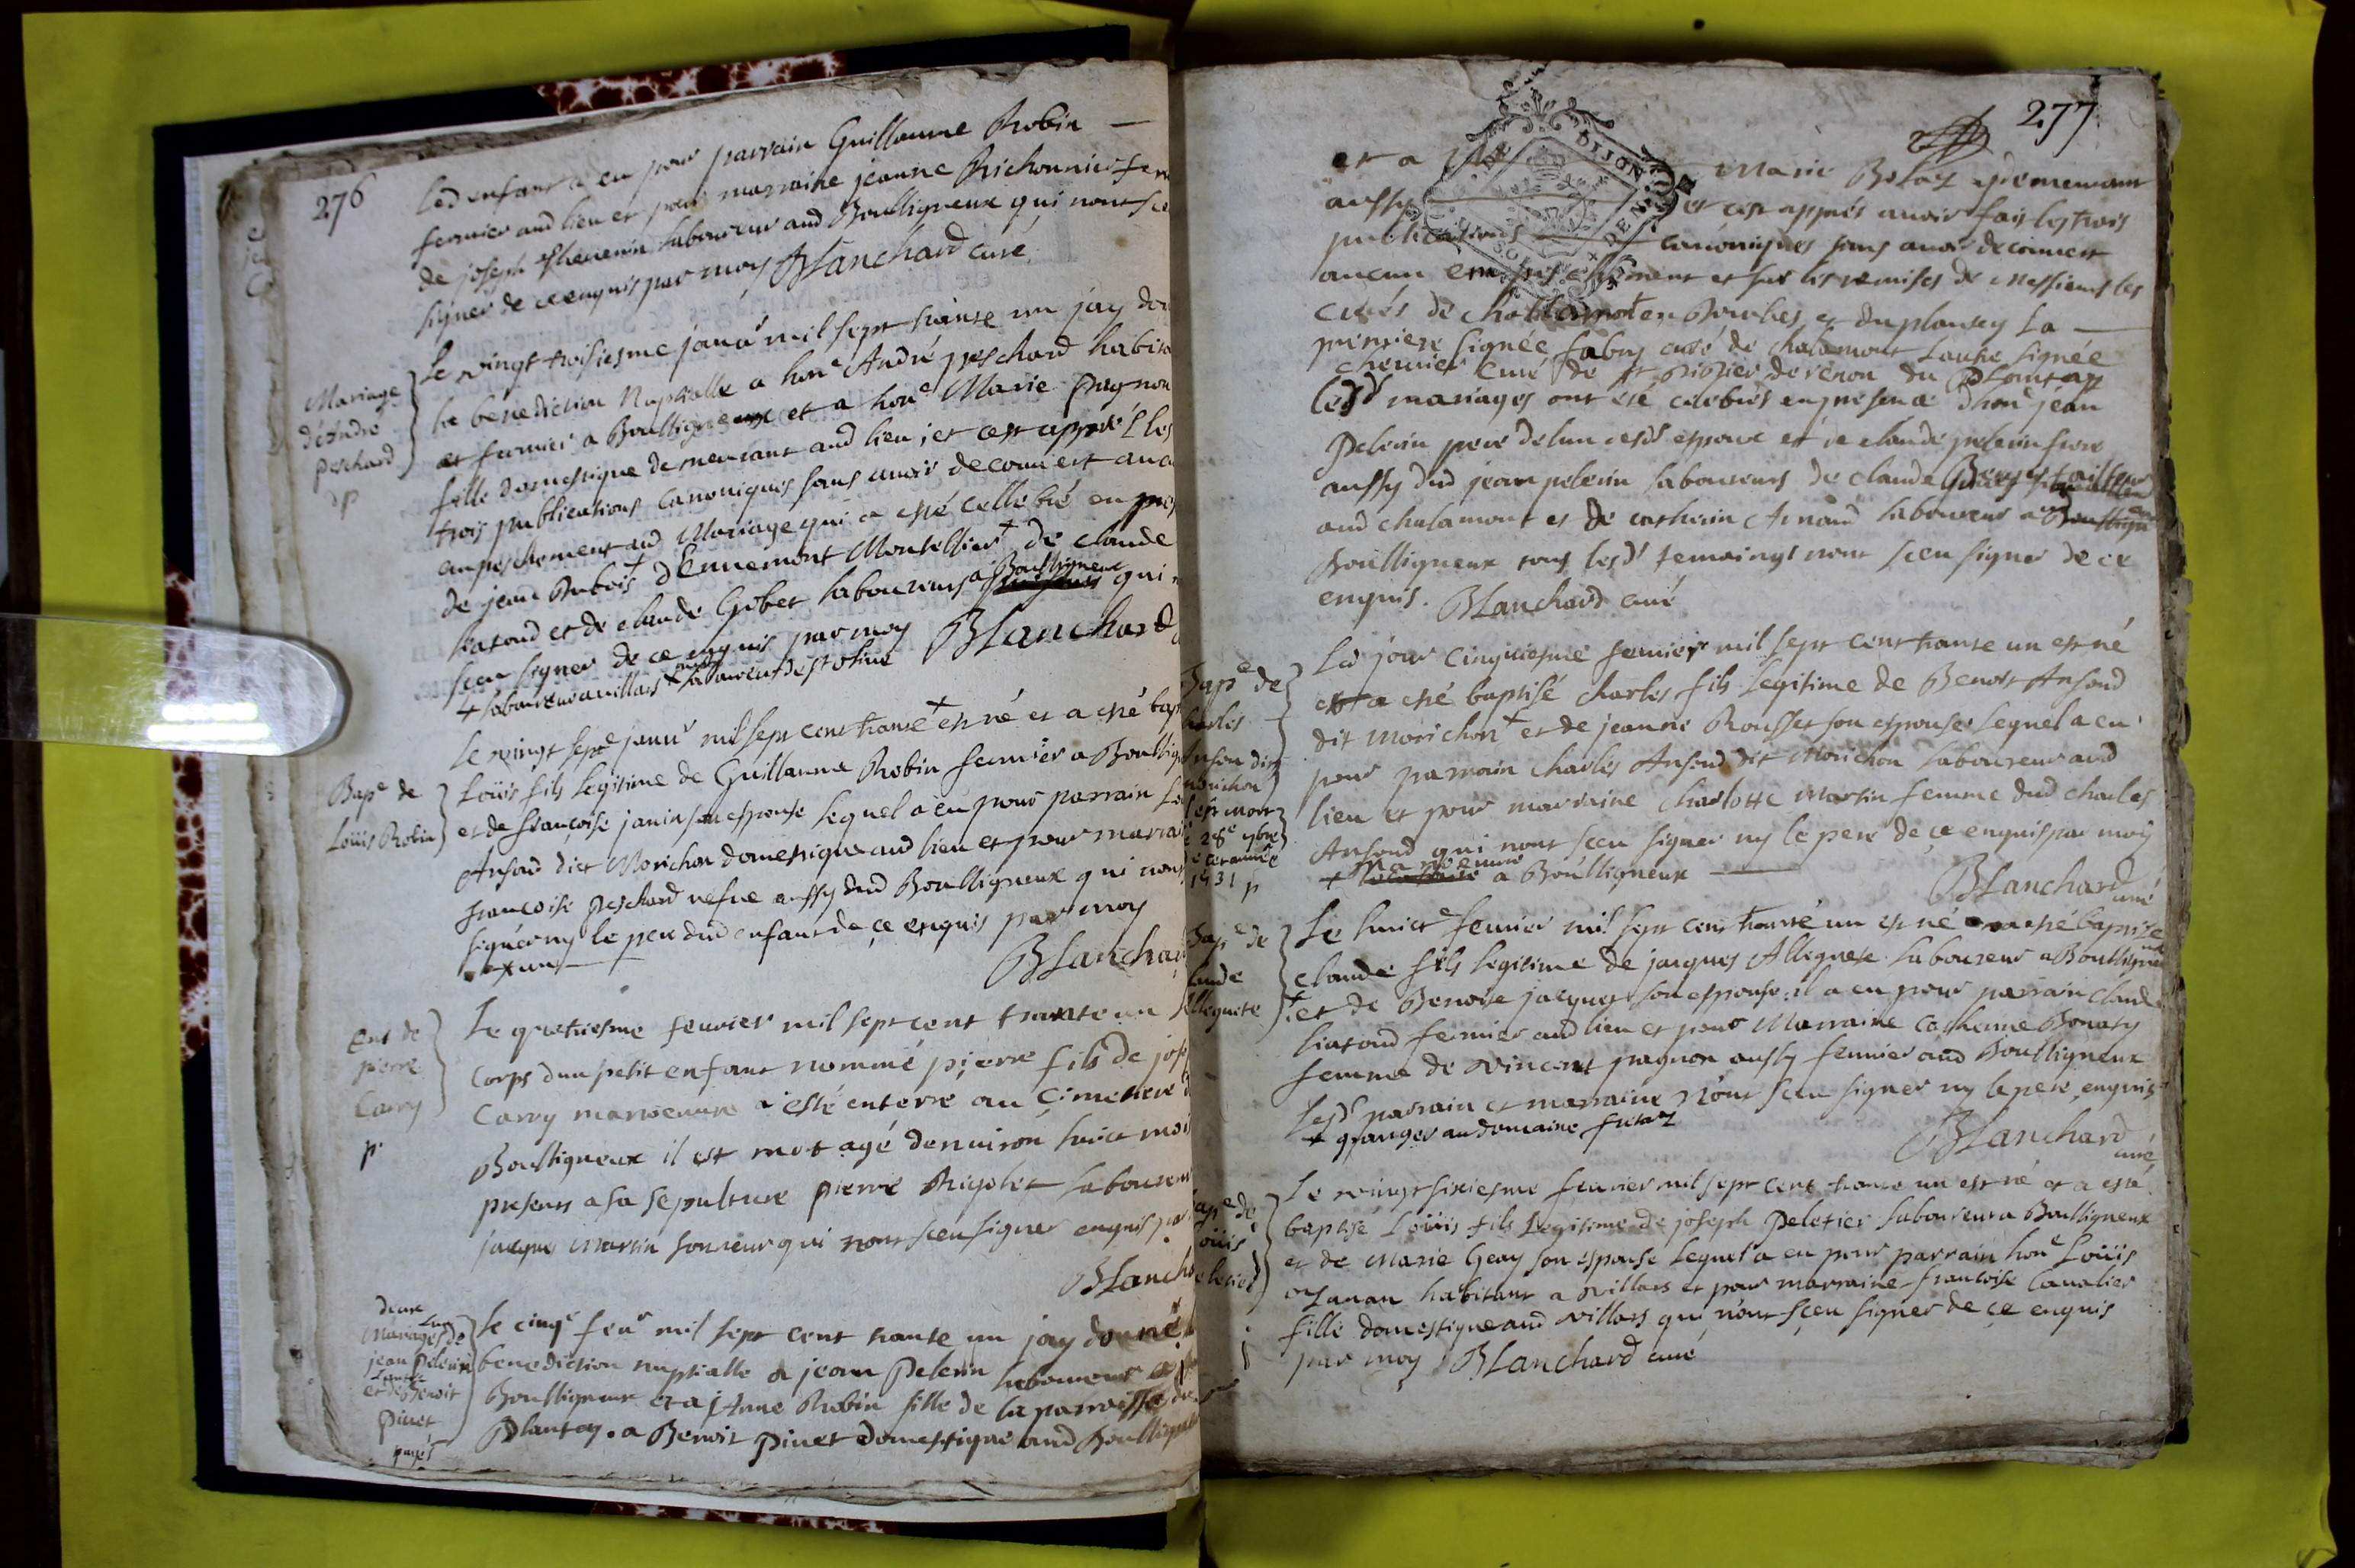 276
Led enfant a eu pour parrain Guillaume Robin
fermier aud lieu et pour marraine jeanne Richonnier fem
de joseph laboureur aud Boulligneux qui nont sce
signer de ce enquis par moy Blanchard curé
Mariage
d'André
Peschard
p
Le vingt troisiesme janu mil sept trante un jay don
la benediction Nuptialle a hone André peschard habita
et fermier a Boulligneux et a hone Marie pagnon
fille domestique demeurant aud lieu et cest apprés les
trois publications canoniques sans avoir decouvert auc
empeschement aud Mariage qui a esté cellebré en pres
de jean Dubois + d'Ennemont Montellier + de claude
liatoud et de claude Gobet laboureurs a Boulligneux qui
sceu signer de ce enquis par moy Blanchard
+ laboureur a villars + laboureur de st olive
Bape de
Loüis Robin
Le vingt septe janu mil sept cent trante + est né et a esté bap
Loüis fils legitime de Guillaume Robin fermier a Boullig
et de françoise janin son espouse lequel a eu pour parrain
Ansoud dict Morichon domestique aud lieu et pour marrai
françoise peschard vefve aussy dud Boulligneux qui nont
signer ny le pere dud enfant de ce enquis par moy
+ un
Blanchar
Ent de
pierre
Carry
p.
Le quatriesme fevrier mil sept cent trante un
corps dun petit enfant nommé pierre fils de jose
Carry manoeuvre a esté enterré au cimetiere d
Boulligneux il est mort agé denviron huict mois
presents a sa sepulture pierre Rigolet laboureur
jacques Martin sonneur qui nont sceu signer enquis par
Blancha
deux
Mariages Lun de
jean Pelerin
Lautre
et de Benoit
Pinet
pages
Le cinqe feur mil sept cent trante un jay donné
benediction nuptialle a jean Pelerin laboureur a
Boulligneux et a jeanne Robin fille de la parroisse du
Plantay. a Benoit Pinet domestique aud Boulligneux
277
DE DIJON
et a Marie Belay demeurant
aussy et cest apprés avoir fait les trois
publications canoniques sans avoir decouvert
aucun empeschement et sur les remises de Messieurs les
curés de chatlamont en Dombes et du plantey La
premiere signée fabry curé de chalamont Lautre signée
chevrier curé de du Plantay
lesds mariages ont été celebrés en presence dhone jean
Pelerin pere de lun desds espoux et de claude pelerin frere
aussy dud jean pelerin laboureurs de claude
aud chalamont et de cartherin Arnaud laboureur a
Boulligneux tous lesds temoingts nont sceu signer de ce
enquis. Blanchard curé
Bape de
harles
Ansou dit
morichon
est mort
28e 9bre
cet année
1731 p
Led jour cinquiesme fevrier mil sept cent trante un est né
et a esté baptisé charles fils legitime de Benoit Ansoud
dit Morichon + et de jeanne Rousset son espouse lequel a eu
pour parrain charles Ansoud dit Morichon laboureur aud
lieu et pour marraine charlotte Martin femme dud charles
Ansoud qui nont sceu signer ny le pere de ce enquis par moy
+ Manoeuvre a Boulligneux
Blanchard curé
Bape de
laude
Allegnete
Le huicte fevrier mil sept cent trante un est né et a esté baptisé
claude fils legitime de jacques Allegnete laboureur a Boulligneux
+ et de Benoite jacquet son espouse: il a eu pour parrain claude
liatoud fermier aud lieu et pour Marraine Catherine Bonary
femme de vincent pagnon aussy fermier aud Boulligneux
lesds parrain et marraine N'ont sceu signer ny le pere, enquis
+ granger au domaine
Blanchard
curé
ape de
oüis
eletier
Le vingt sixiesme fevrier mil sept cent trante un est né et a esté
baptisé Loüis fils Legitime de joseph Peletier laboureur a Boulligneux
et de Marie Geay son espouse lequel a eu pour parrain hone Loüis
habitant a villars et pour marraine francoise Cavalier
fille domestique aud villars qui n'ont sceu signer de ce enquis
par moy Blanchard curé